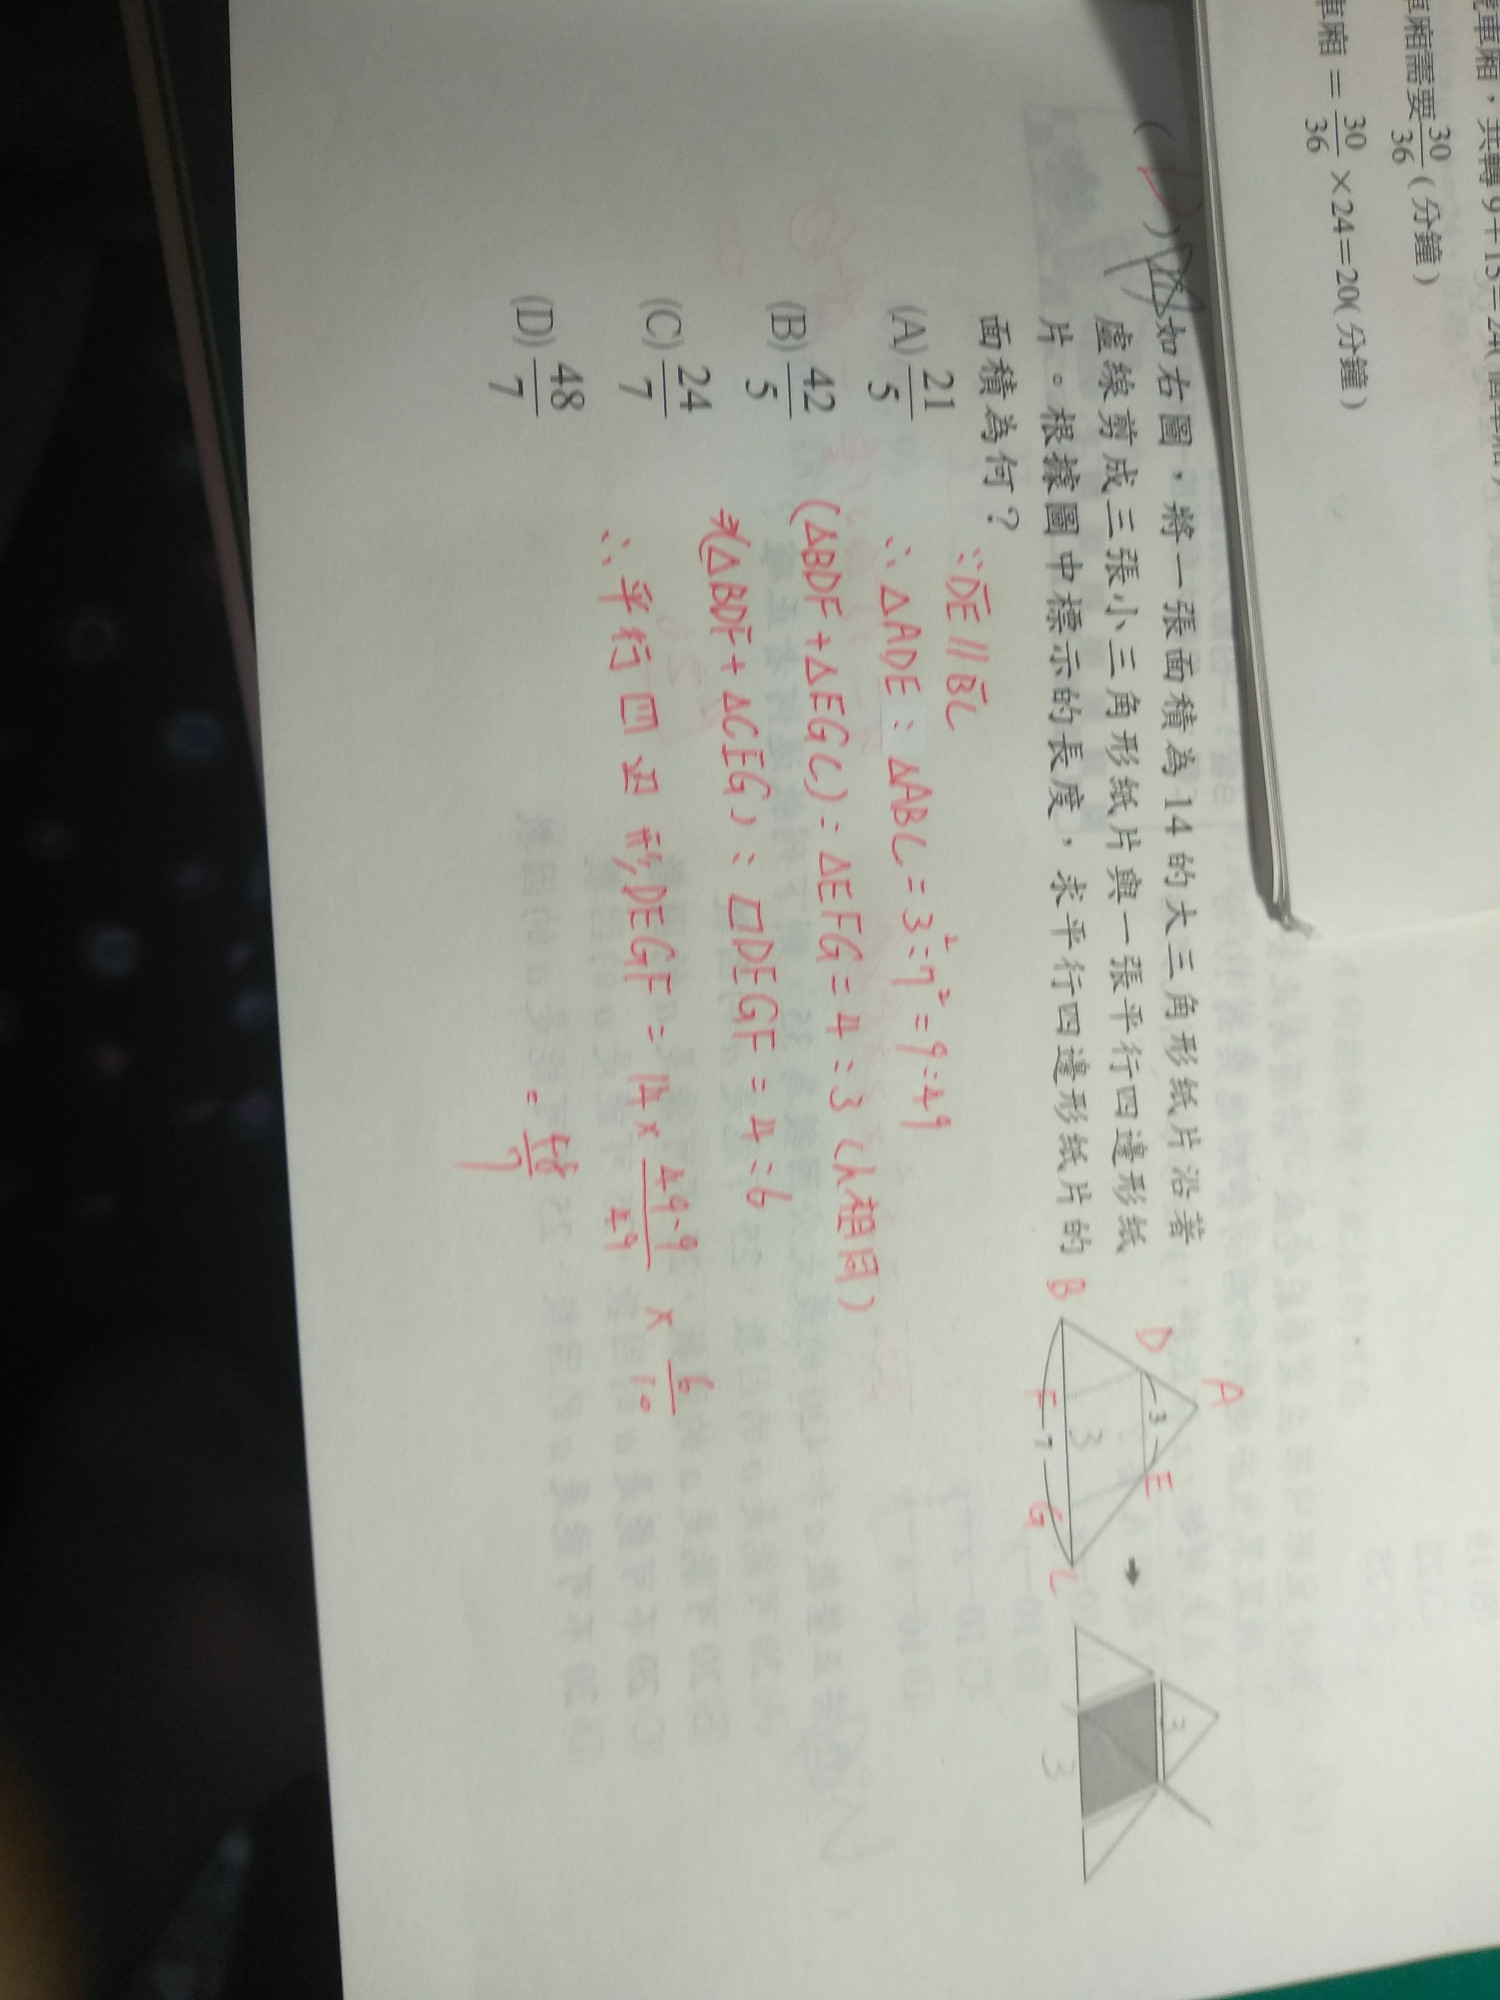 車廂,共轉9+15=24(個車廂)
車廂需要30/36(分鐘)
車廂=30/36×24=20(分鐘)
(D)
如右圖,將一張面積為14的大三角形紙片沿著
虛線剪成三張小三角形紙片與一張平行四邊形紙
片。根據圖中標示的長度,求平行四邊形紙片的
面積為何?
(A) 21/5
(B) 42/5
(C) 24/7
(D) 48/7
∵DE//BC
∴△ADE:△ABC=3²:7²=9:49
(△BDF+△EGC):△EFG=4:3(h相同)
⇒(△BDF+△CEG):▱DEGF=4:6
∴平行四边形DEGF=14×(49-9)/49×6/10
=48/7
A
D
3
E
B
3
F
7
G
C
➔
3
3